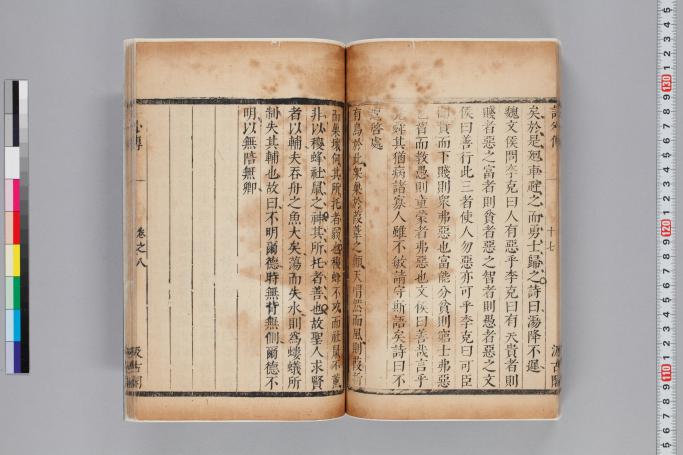 矣於是廻車避之而勇士歸之詩曰湯降不遲
魏文侯問李克曰人有惡乎李克曰有夫貴者則
賤者惡之富者則貧者惡之智者則愚者惡之文
侯曰善行此三者使人勿惡亦可乎李克曰可臣
聞貴而下賤則衆弗惡也富能分貧則窮士弗惡
也智而教愚則童蒙者弗惡也文侯曰善哉言乎
堯舜其猶病諸寡人雖不敏請守斯語矣詩曰不
遑啓處
有鳥於此架巢於葭葦之顚天喟然而風則葭折
而巢壞何其所托者弱也稷蜂不攻而社鼠不薰
非以稷蜂社鼠之神其所托者善也故聖人求賢
者以輔夫吞舟之魚大矣蕩而失水則爲螻蟻所
制失其輔也故曰不明爾德時無背無側爾德不
明以無陪無卿
十七
汲古閣
卷之八
汲古閣